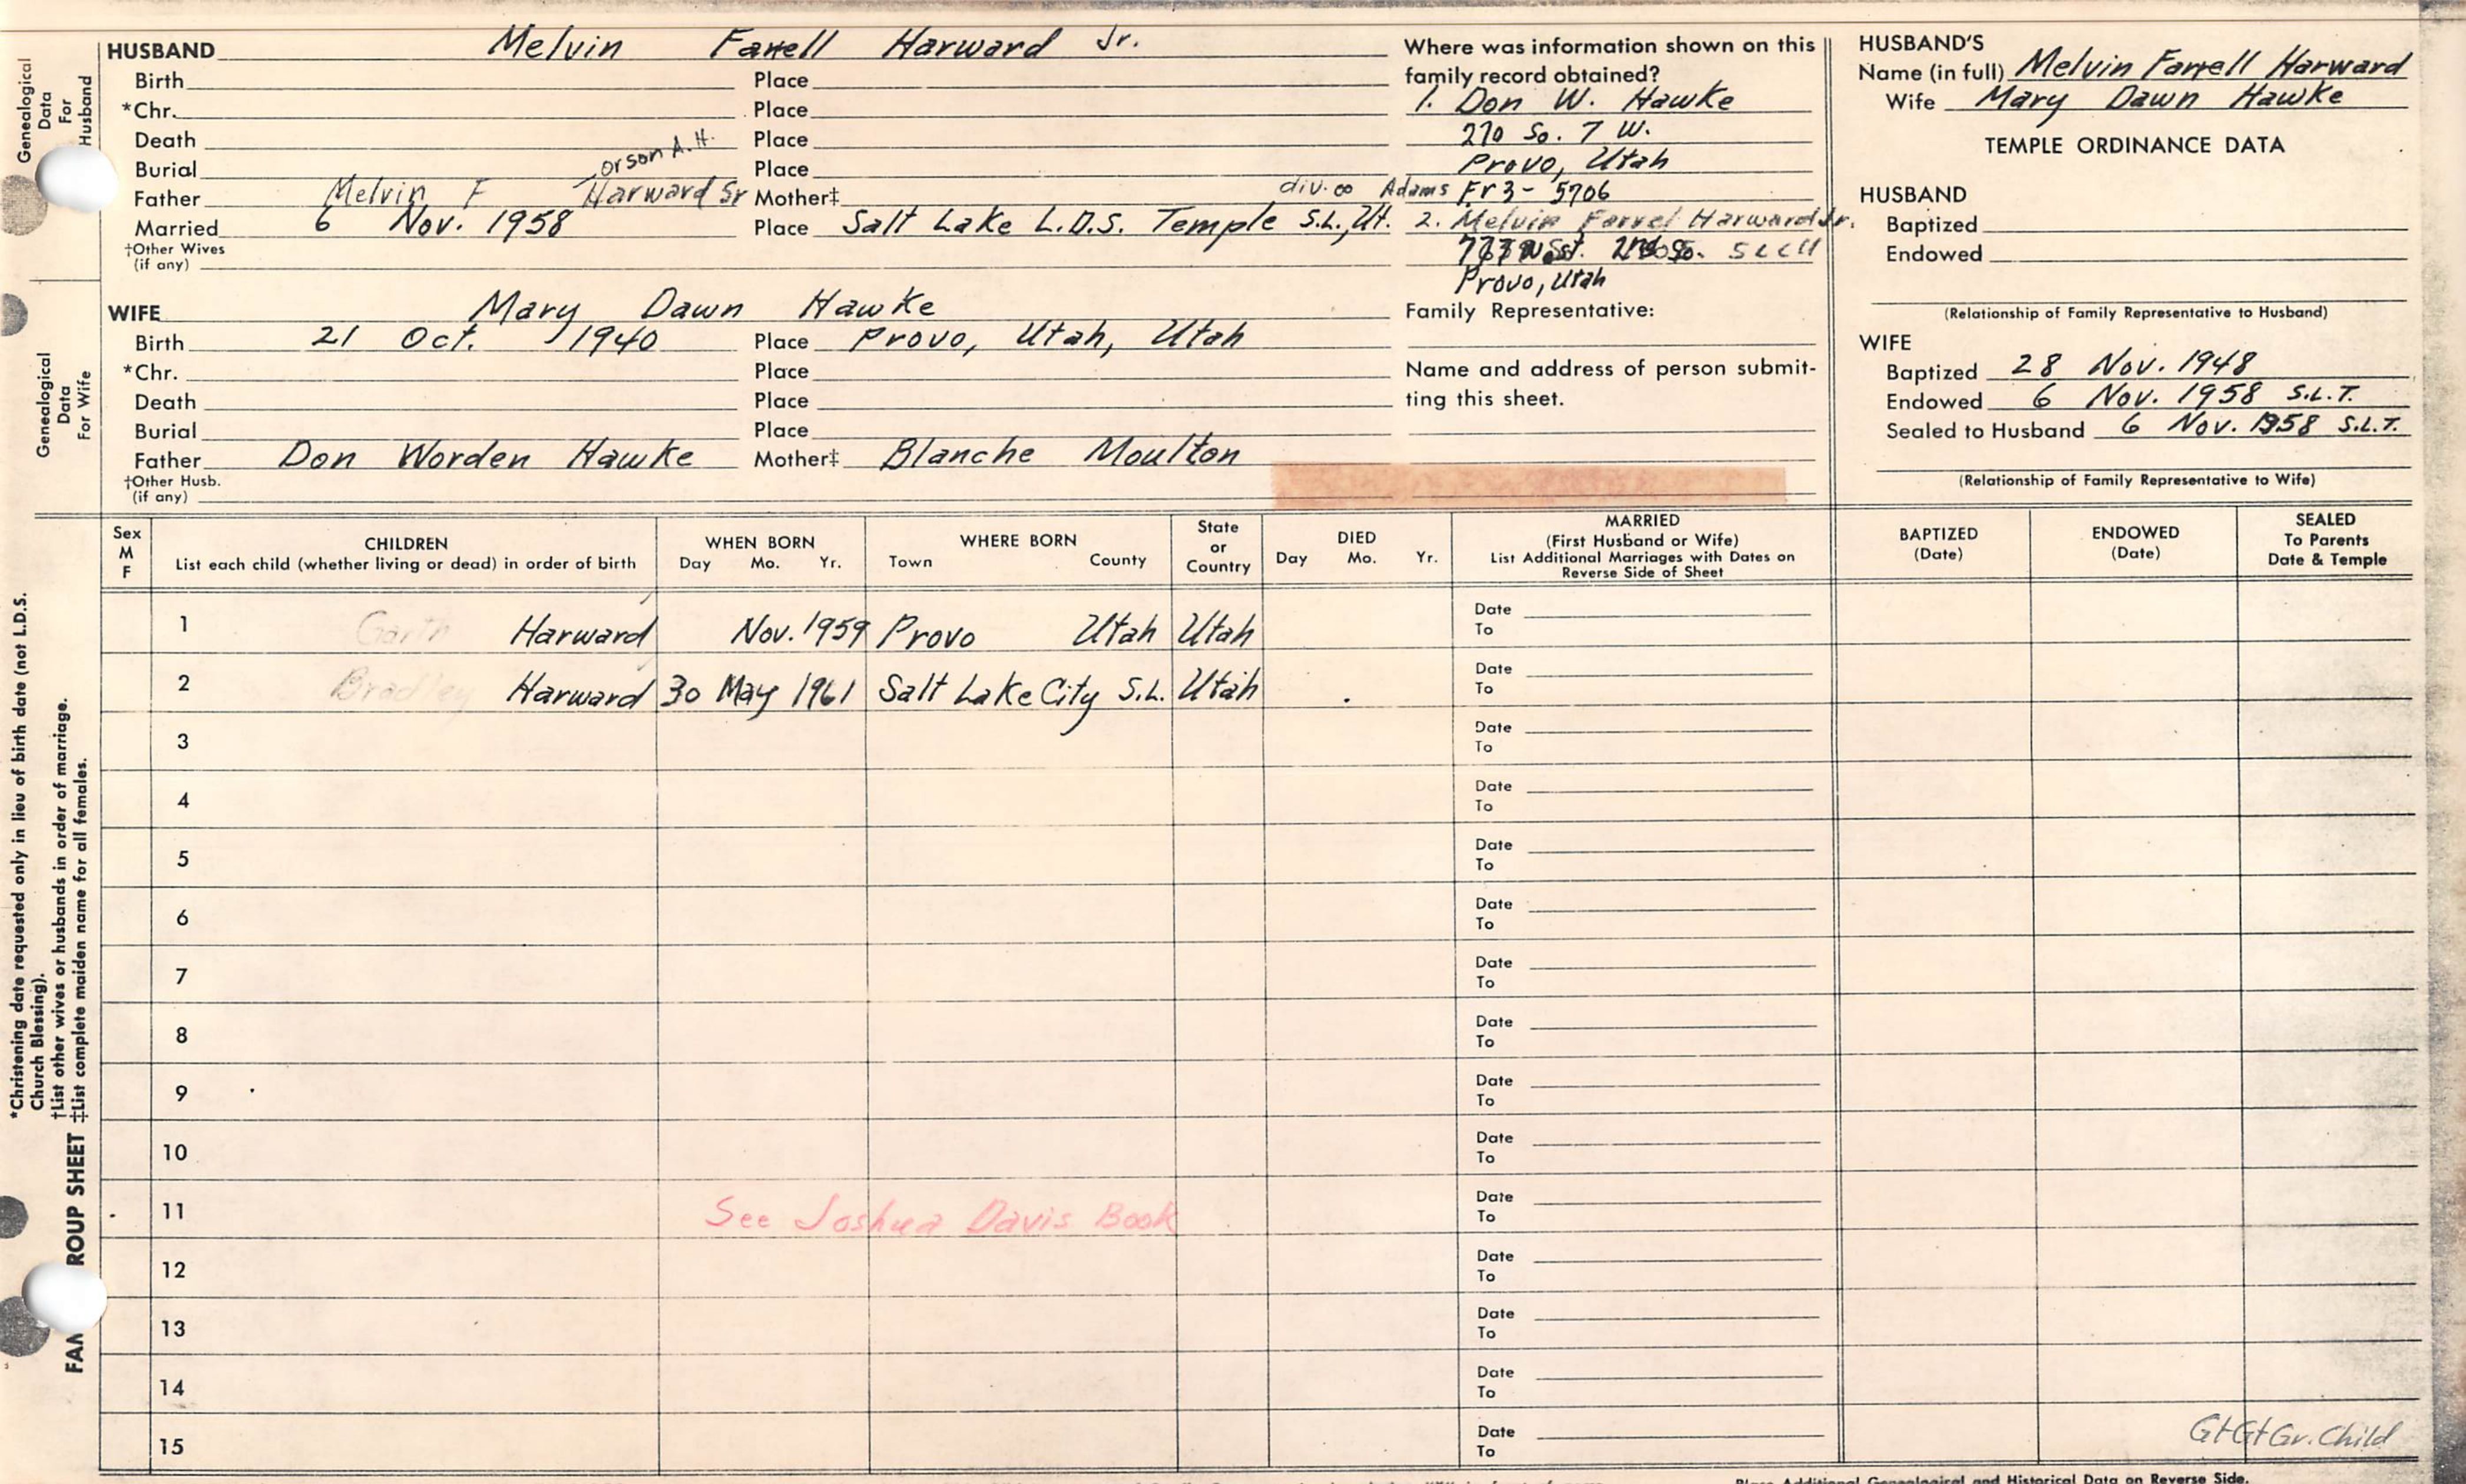 HUSBAND Melvin Farrell Harward Jr.
Birth Place
*Chr. Place
Death Place
Burial Place
orson A.H.
Father Melvin F Harward Sr Mother‡ div. ∞ Adams
Married 6 Nov. 1958 Place Salt Lake L.D.S. Temple S.L., Ut.
†Other Wives
(if any)
WIFE Mary Dawn Hawke
Birth 21 Oct. 1940 Place Provo, Utah, Utah
*Chr. Place
Death Place
Burial Place
Father Don Worden Hawke Mother‡ Blanche Moulton
†Other Husb.
(if any)
Where was information shown on this
family record obtained?
1. Don W. Hawke
270 So. 7 W.
Provo, Utah
Fr 3-5706
2. Melvin Farrel Harward Jr.
Provo, Utah
Family Representative:
Name and address of person submit-
ting this sheet.
HUSBAND'S
Name (in full) Melvin Farrell Harward
Wife Mary Dawn Hawke
TEMPLE ORDINANCE DATA
HUSBAND
Baptized
Endowed
(Relationship of Family Representative to Husband)
WIFE
Baptized 28 Nov. 1948
Endowed 6 Nov. 1958 S.L.T.
Sealed to Husband 6 Nov. 1958 S.L.T.
(Relationship of Family Representative to Wife)
Genealogical
Data
For
Husband
Genealogical
Data
For Wife
Sex
M
F
CHILDREN
List each child (whether living or dead) in order of birth
WHEN BORN
Day Mo. Yr.
WHERE BORN
Town County
State
or
Country
DIED
Day Mo. Yr.
MARRIED
(First Husband or Wife)
List Additional Marriages with Dates on
Reverse Side of Sheet
BAPTIZED
(Date)
ENDOWED
(Date)
SEALED
To Parents
Date & Temple
1 Garth Harward Nov. 1959 Provo Utah Utah Date
To
2 Bradley Harward 30 May 1961 Salt Lake City S.L. Utah Date
To
3 Date
To
4 Date
To
5 Date
To
6 Date
To
7 Date
To
8 Date
To
9 Date
To
10 Date
To
11 See Joshua Davis Book Date
To
12 Date
To
13 Date
To
14 Date
To
15 Date
To
GtGtGr. Child
*Christening date requested only in lieu of birth date (not L.D.S.
Church Blessing).
†List other wives or husbands in order of marriage.
‡List complete maiden name for all females.
FAM ROUP SHEET
Place Additional Genealogical and Historical Data on Reverse Side.